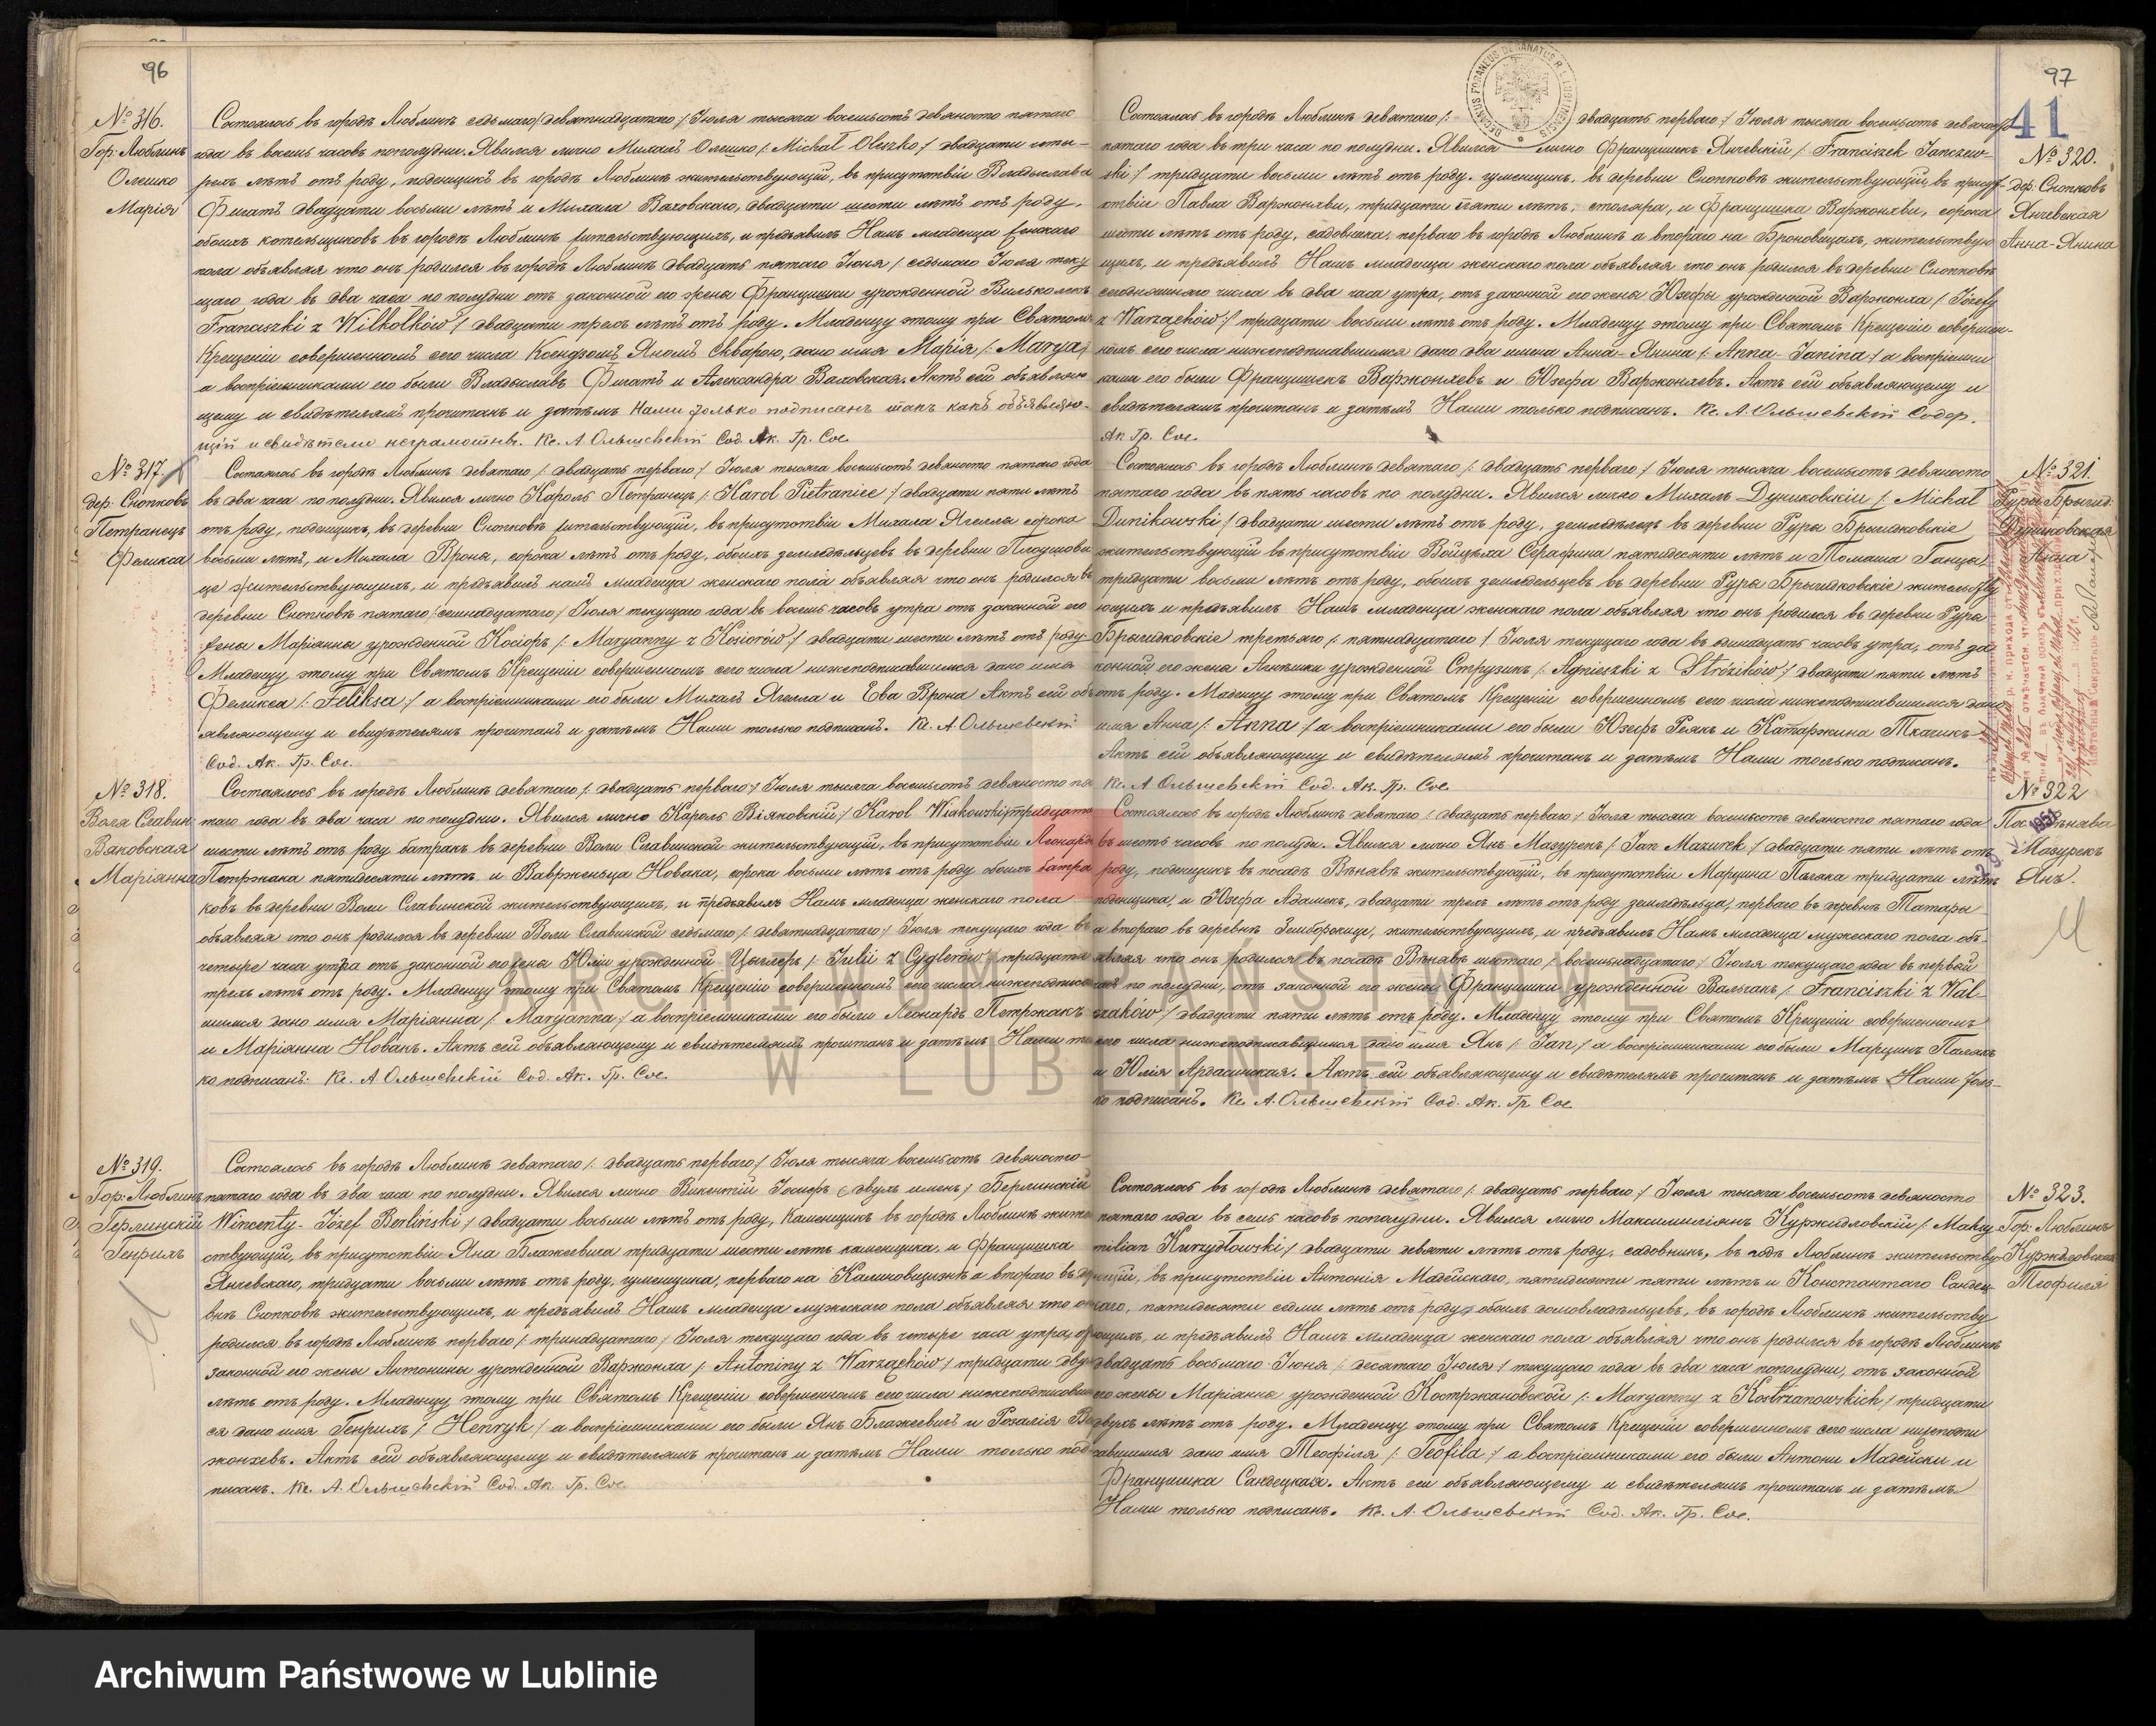 96
№ 316.
Гор: Люблинъ
Олешко
Марія
Состоялось въ городѣ Люблинѣ седьмаго /: девятнадцатаго :/ Іюля тысяча восемьсотъ девяносто пятаго
года въ восемь часовъ пополудни. Явился лично Михаилъ Олешко /: Michał Oleszko :/ двадцати четы-
рехъ лѣтъ отъ роду, поденщикъ въ городѣ Люблинѣ жительствующій, въ присутствіи Владыслава
Фигатъ двадцати восьми лѣтъ и Михала Ваховскаго, двадцати шести лѣтъ отъ роду,
обоихъ котельщиковъ въ городѣ Люблинѣ жительствующихъ, и предъявилъ Намъ младенца женскаго
пола объявляя что онъ родился въ городѣ Люблинѣ двадцать пятаго Іюня / седьмаго Іюля теку
щаго года въ два часа по полудни отъ законной его жены Францишки урожденной Вильколекъ
Franciszki z Wilkołków :/ двадцати трехъ лѣтъ отъ роду. Младенцу этому при Святомъ
Крещеніи совершенномъ сего числа Ксендзомъ Яномъ Скварою, дано имя Марія /: Marya :/
а воспріемниками его были Владыславъ Фигатъ и Александра Ваховская. Актъ сей объявляю
щему и свидѣтелямъ прочитанъ и затѣмъ Нами только подписанъ такъ какъ объявляю-
щій и свидѣтели неграмотны. Кс. А. Ольшевскій Сод. Ак. Гр. Сос.
№ 317.
дер: Снопковъ
Петранецъ
Феликса
Состоялось въ городѣ Люблинѣ девятаго /: двадцать перваго :/ Іюля тысяча восемьсотъ девяносто пятаго года
въ два часа по полудни. Явился лично Кароль Петранецъ /: Karol Pietraniec :/ двадцати пяти лѣтъ
отъ роду, поденщикъ, въ деревни Снопковѣ жительствующій, въ присутствіи Михала Ягелла сорока
восьми лѣтъ, и Михала Врона, сорока лѣтъ отъ роду, обоихъ земледѣльцевъ въ деревни Плоушови
це жительствующихъ, и предъявилъ намъ младенца женскаго пола объявляя что онъ родился въ
деревни Снопковѣ пятаго / семнадцатаго / Іюля текущаго года въ восемь часовъ утра отъ законной его
жены Маріянны урожденной Косіоръ /: Maryanny z Kosiorów :/ двадцати шести лѣтъ отъ роду
Младенцу этому при Святомъ Крещеніи совершенномъ сего числа нижеподписавшимся дано имя
Феликса /: Feliksa :/ а воспріемниками его были Михалъ Ягелла и Ева Врона Актъ сей объ
являющему и свидѣтелямъ прочитанъ и затѣмъ Нами только подписанъ. Кс. А. Ольшевскій
Сод. Ак. Гр. Сос.
№ 318.
Воля Славин:
Вяковская
Маріянна
Состоялось въ городѣ Люблинѣ девятаго /: двадцать перваго :/ Іюля тысяча восемьсотъ девяносто пя
таго года въ два часа по полудни. Явился лично Кароль Віяковскій :/ Karol Wiakowski :/ тридцати
шести лѣтъ отъ роду батракъ въ деревни Воли Славинской жительствующій, въ присутствіи Леонарда
Петржака пятидесяти лѣтъ, и Вавржинца Новака, сорока восьми лѣтъ отъ роду обоихъ батра
ковъ въ деревни Воли Славинской жительствующихъ, и предъявилъ Намъ младенца женскаго пола
объявляя что онъ родился въ деревни Воли Славинской седьмаго /: девятнадцатаго :/ Іюля текущаго года въ
четыре часа утра отъ законной его жены Юліи урожденной Цыглеръ /: Julii z Cyglerów :/ тридцати
трехъ лѣтъ отъ роду. Младенцу этому при Святомъ Крещеніи совершенномъ сего числа нижеподписав
шимся дано имя Маріянна /: Maryanna :/ а воспріемниками его были Леонардъ Петржакъ
и Маріянна Новакъ. Актъ сей объявляющему и свидѣтелямъ прочитанъ и затѣмъ Нами толь
ко подписанъ: Кс. А Ольшевскій Сод. Ак. Гр. Сос.
№ 319.
Гор: Люблинъ
Берлинскій
Генрихъ
Состоялось въ городѣ Люблинѣ девятаго /: двадцать перваго :/ Іюля тысяча восемьсотъ девяносто-
пятаго года въ два часа по полудни. Явился лично Викентій Іосифъ (двухъ именъ) Берлинскій
Wincenty-Józef Berliński :/ двадцати восьми лѣтъ отъ роду, каменщикъ въ городѣ Люблинѣ жите
ствующій, въ присутствіи Яна Блажеевича тридцати шести лѣтъ каменщика, и Францишка
Янчевскаго, тридцати восьми лѣтъ отъ роду, гуменщика, перваго на Калиновщизнѣ а втораго въ дер
внѣ Снопковѣ жительствующихъ, и предъявилъ Намъ младенца мужескаго пола объявляя что онъ
родился въ городѣ Люблинѣ перваго /: тринадцатаго :/ Іюля текущаго года въ четыре часа утра, отъ
законной его жены Антонины урожденной Варжонха /: Antoniny z Warzachów :/ тридцати двухъ
лѣтъ отъ роду. Младенцу этому при Святомъ Крещеніи совершенномъ сего числа нижеподписавши
ся дано имя Генрихъ /: Henryk :/ а воспріемниками его были Янъ Блажеевичъ и Розалія Вар
жонхевъ. Актъ сей объявляющему и свидѣтелямъ прочитанъ и затѣмъ Нами только под
писанъ. Кс. А. Ольшевскій Сод. Ак. Гр. Сос.
97
41
DECANUS FORANEUS DECANATUS R. L. LUBLINENSIS
№ 320.
дер: Снопковъ
Янчевская
Анна-Янина
Состоялось въ городѣ Люблинѣ девятаго /: двадцать перваго :/ Іюля тысяча восемьсотъ девяносто
пятаго года въ три часа по полудни. Явился лично Францишекъ Янчевскій /: Franciszek Janczew-
ski :/ тридцати восьми лѣтъ отъ роду, гуменщикъ, въ деревни Снопковѣ жительствующій, въ присут
ствіи Павла Варжонхви, тридцати пяти лѣтъ, столяра, и Францишка Варжонхви, сорока
шести лѣтъ отъ роду, садовника, перваго въ городѣ Люблинѣ а втораго на Броновицахъ, жительствую
щихъ, и предъявилъ Намъ младенца женскаго пола объявляя что онъ родился въ деревни Снопковѣ
сегодняшняго числа въ два часа утра, отъ законной его жены Юзефы урожденной Варжонха /: Józefy
z Warzachów :/ тридцати восьми лѣтъ отъ роду. Младенцу этому при Святомъ Крещеніи совершен-
номъ сего числа нижеподписавшимся дано два имена Анна-Янина /: Anna-Janina :/ а воспріемни
ками его были Францишекъ Варжонхевъ и Юзефа Варжонхевъ. Актъ сей объявляющему и
свидѣтелямъ прочитанъ и затѣмъ Нами только подписанъ. Кс. А. Ольшевскій Содер.
Ак Гр. Сос.
№ 321.
Руры Брыгид:
Дуниковская
Анна
Состоялось въ городѣ Люблинѣ девятаго /: двадцать перваго :/ Іюля тысяча восемьсотъ девяносто
пятаго года въ пять часовъ по полудни. Явился лично Михалъ Дуниковскій /: Michał
Dunikowski :/ двадцати шести лѣтъ отъ роду, земледѣлецъ въ деревни Руры Брыгидковскіе
жительствующій въ присутствіи Войцѣха Серафина пятидесяти лѣтъ и Томаша Ганца
тридцати восьми лѣтъ отъ роду, обоихъ земледѣльцевъ въ деревни Руры Брыгидковскіе жительству
ющихъ и предъявилъ Намъ младенца женскаго пола объявляя что онъ родился въ деревни Руры
Брыгидковскіе третьяго /: пятнадцатаго / Іюля текущаго года въ одинадцать часовъ утра, отъ за
конной его жены Агнѣшки урожденной Струзикъ /: Agnieszki z Strózików :/ двадцати пяти лѣтъ
отъ роду. Маденцу этому при Святомъ Крещеніи совершенномъ сего числа нижеподписавшимся дано
имя Анна /: Anna :/ а воспріемниками его были Юзефъ Реякъ и Катаржина Ткачикъ
Актъ сей объявляющему и свидѣтелямъ прочитанъ и затѣмъ Нами только подписанъ.
Кс. А Ольшевскій Сод. Ак. Гр. Сос
№ 322
Пос. Вѣнява
Мазурекъ
Янъ.
Состоялось въ городѣ Люблинѣ девятаго /: двадцать перваго :/ Іюля тысяча восемьсотъ девяносто пятаго года
въ шесть часовъ по полудн. Явился лично Янъ Мазурекъ /: Jan Mazurek :/ двадцати пяти лѣтъ отъ
роду, поденщикъ въ посадѣ Вѣнявѣ жительствующій, въ присутствіи Марцина Паляка тридцати лѣтъ
поденщика, и Юзефа Адамекъ, двадцати трехъ лѣтъ отъ роду земледѣльца, перваго въ деревнѣ Татары
а втораго въ деревнѣ Земборжице, жительствующихъ, и предъявилъ Намъ младенца мужескаго пола объ-
являя что онъ родился въ посадѣ Вѣнявѣ шестаго /: восемьнадцатаго :/ Іюля текущаго года въ первый
часъ по полудни, отъ законной его жены Францишки урожденной Вальчакъ /: Franciszki z Wal-
czaków :/ двадцати пяти лѣтъ отъ роду. Младенцу этому при Святомъ Крещеніи совершенномъ
сего числа нижеподписавшимся дано имя Янъ /: Jan :/ а воспріемниками его были Марцинъ Палякъ
и Юлія Ардасинская. Актъ сей объявляющему и свидѣтелямъ прочитанъ и затѣмъ Нами толь-
ко подписанъ. Кс. А. Ольшевскій Сод. Ак. Гр Сос
№ 323.
Гор: Люблинъ
Куржидловская
Теофиля
Состоялось въ городѣ Люблинѣ девятаго /: двадцать перваго :/ Іюля тысяча восемьсотъ девяносто
пятаго года въ семь часовъ пополудни. Явился лично Максимиліянъ Куржидловскій /: Maksy
milian Kurzydłowski :/ двадцати девяти лѣтъ отъ роду, садовникъ, въ годѣ Люблинѣ жительству
ющій, въ присутствіи Антонія Мадейскаго, пятидесяти пяти лѣтъ и Константаго Сандец
каго, пятидесяти седми лѣтъ отъ роду, обоихъ домовладѣльцевъ, въ городѣ Люблинѣ жительству
ющихъ, и предъявилъ Намъ младенца женскаго пола объявляя что онъ родился въ городѣ Люблинѣ
двадцать восьмаго Іюня /: десятаго Іюля :/ текущаго года въ два часа пополудни, отъ законной
его жены Маріянны урожденной Костржановской /: Maryanny z Kostrzanowskich / тридцати
двухъ лѣтъ отъ роду. Младенцу этому при Святомъ Крещеніи совершенномъ сего числа нижеподпи
савшимся дано имя Теофіля /: Teofila :/ а воспріемниками его были Антони Мадейски и
Францишка Сандецкая. Актъ сей объявляющему и свидѣтелямъ прочитанъ и затѣмъ
Нами только подписанъ. Кс. А. Ольшевскій Сод. Ак. Гр. Сос.
ARCHIWUM PAŃSTWOWE
W LUBLINIE
Archiwum Państwowe w Lublinie